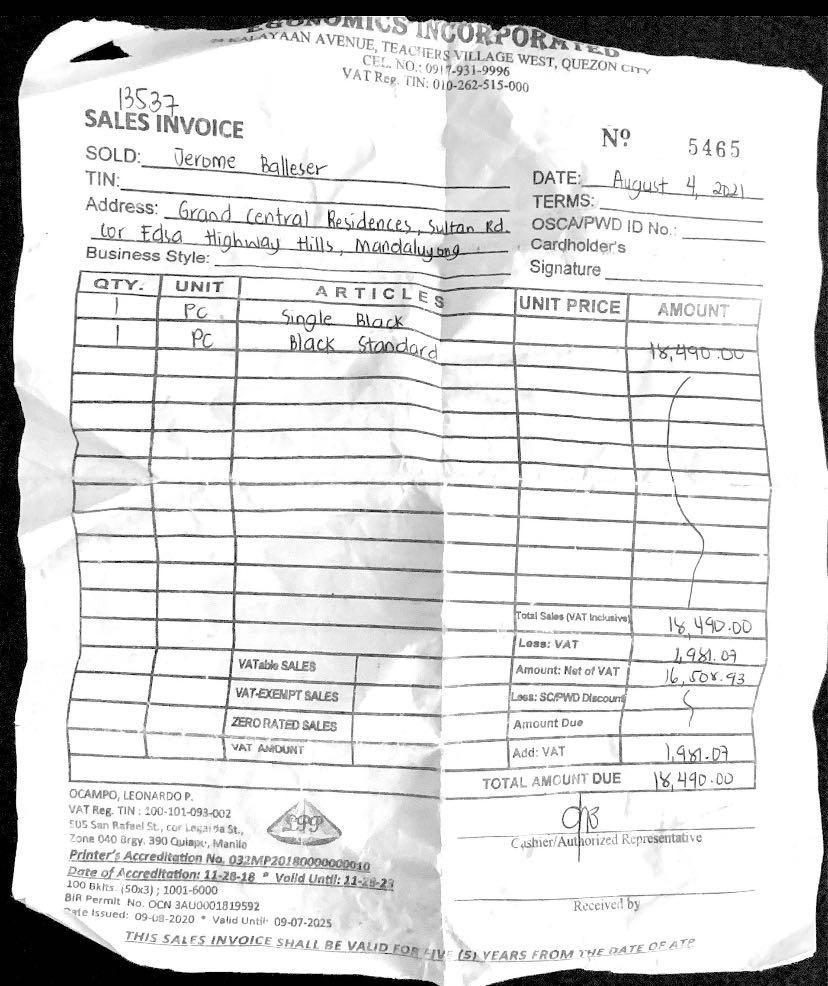 EGONOMICS INCORPORATED
KALAYAAN AVENUE, TEACHERS VILLAGE WEST, QUEZON CITY
CEL. NO.: 0917-931-9996
VAT Reg. TIN: 010-262-515-000
13537
SALES INVOICE
Nº 5465
SOLD: Jerome Balleser
DATE: August 4, 2021
TIN:
TERMS:
Address: Grand Central Residences, Sultan Rd.
OSCA/PWD ID No.:
Cor Edsa Highway Hills, Mandaluyong
Cardholder's
Business Style:
Signature
QTY. UNIT ARTICLES UNIT PRICE AMOUNT
1 PC Single Black
1 PC Black Standard 18,490.00
Total Sales (VAT Inclusive) 18,490.00
Less: VAT 1,981.07
VATable SALES Amount: Net of VAT 16,508.93
VAT-EXEMPT SALES Less: SC/PWD Discount
ZERO RATED SALES Amount Due
VAT AMOUNT Add: VAT 1,981.07
TOTAL AMOUNT DUE 18,490.00
OCAMPO, LEONARDO P.
VAT Reg. TIN : 100-101-093-002
505 San Rafael St., cor Legarda St.,
Zone 040 Brgy. 390 Quiapo, Manila
LPP
Cashier/Authorized Representative
Printer's Accreditation No. 032MP20180000000010
Date of Accreditation: 11-28-18 * Valid Until: 11-28-23
100 Bklts. (50x3) ; 1001-6000
BIR Permit No. OCN 3AU0001819592
Received by
Date Issued: 09-08-2020 * Valid Until: 09-07-2025
THIS SALES INVOICE SHALL BE VALID FOR FIVE (5) YEARS FROM THE DATE OF ATP